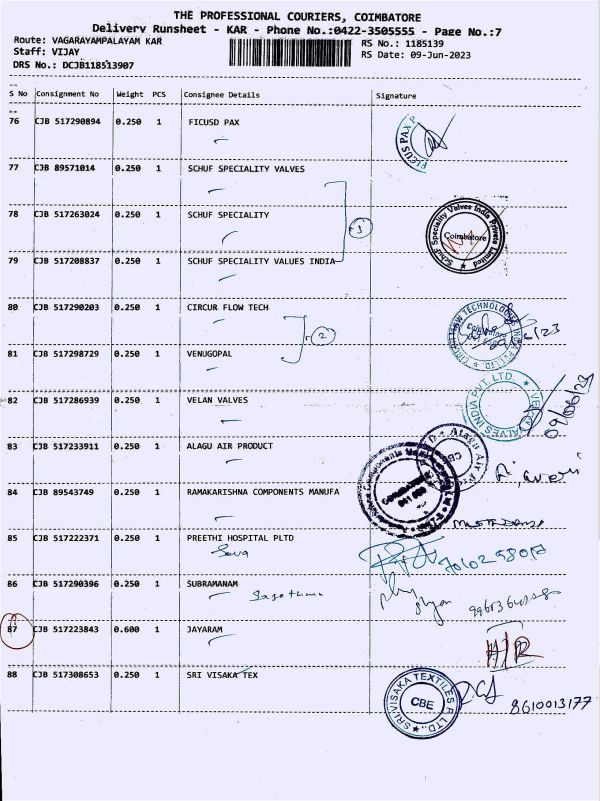 THE PROFESSIONAL COURIERS, COIMBATORE
Delivery Runsheet - KAR - Phone No.:0422-3505555 - Page No.:7
Route: VAGARAYAMPALAYAM KAR
RS No.: 1185139
Staff: VIJAY
RS Date: 09-Jun-2023
DRS No.: DCJB118513907
S No Consignment No Weight PCS Consignee Details Signature
76 CJB 517290894 0.250 1 FICUSD PAX
FICUS PAX P
77 CJB 89571014 0.250 1 SCHUF SPECIALITY VALVES
78 CJB 517263024 0.250 1 SCHUF SPECIALITY
3
SchuF Speciality Valves India Private Limited
Coimbatore
79 CJB 517208837 0.250 1 SCHUF SPECIALITY VALUES INDIA
80 CJB 517290203 0.250 1 CIRCUR FLOW TECH
2
81 CJB 517298729 0.250 1 VENUGOPAL
82 CJB 517286939 0.250 1 VELAN VALVES
VELAN VALVES INDIA PVT. LTD.
09/06/23
83 CJB 517233911 0.250 1 ALAGU AIR PRODUCT
Alagu Air
CBE
84 CJB 89543749 0.250 1 RAMAKARISHNA COMPONENTS MANUFA
85 CJB 517222371 0.250 1 PREETHI HOSPITAL PLTD
86 CJB 517290396 0.250 1 SUBRAMANAM
87 CJB 517223843 0.600 1 JAYARAM
88 CJB 517308653 0.250 1 SRI VISAKA TEX
SRI VISAKA TEXTILES P LTD.,
CBE
8610013177